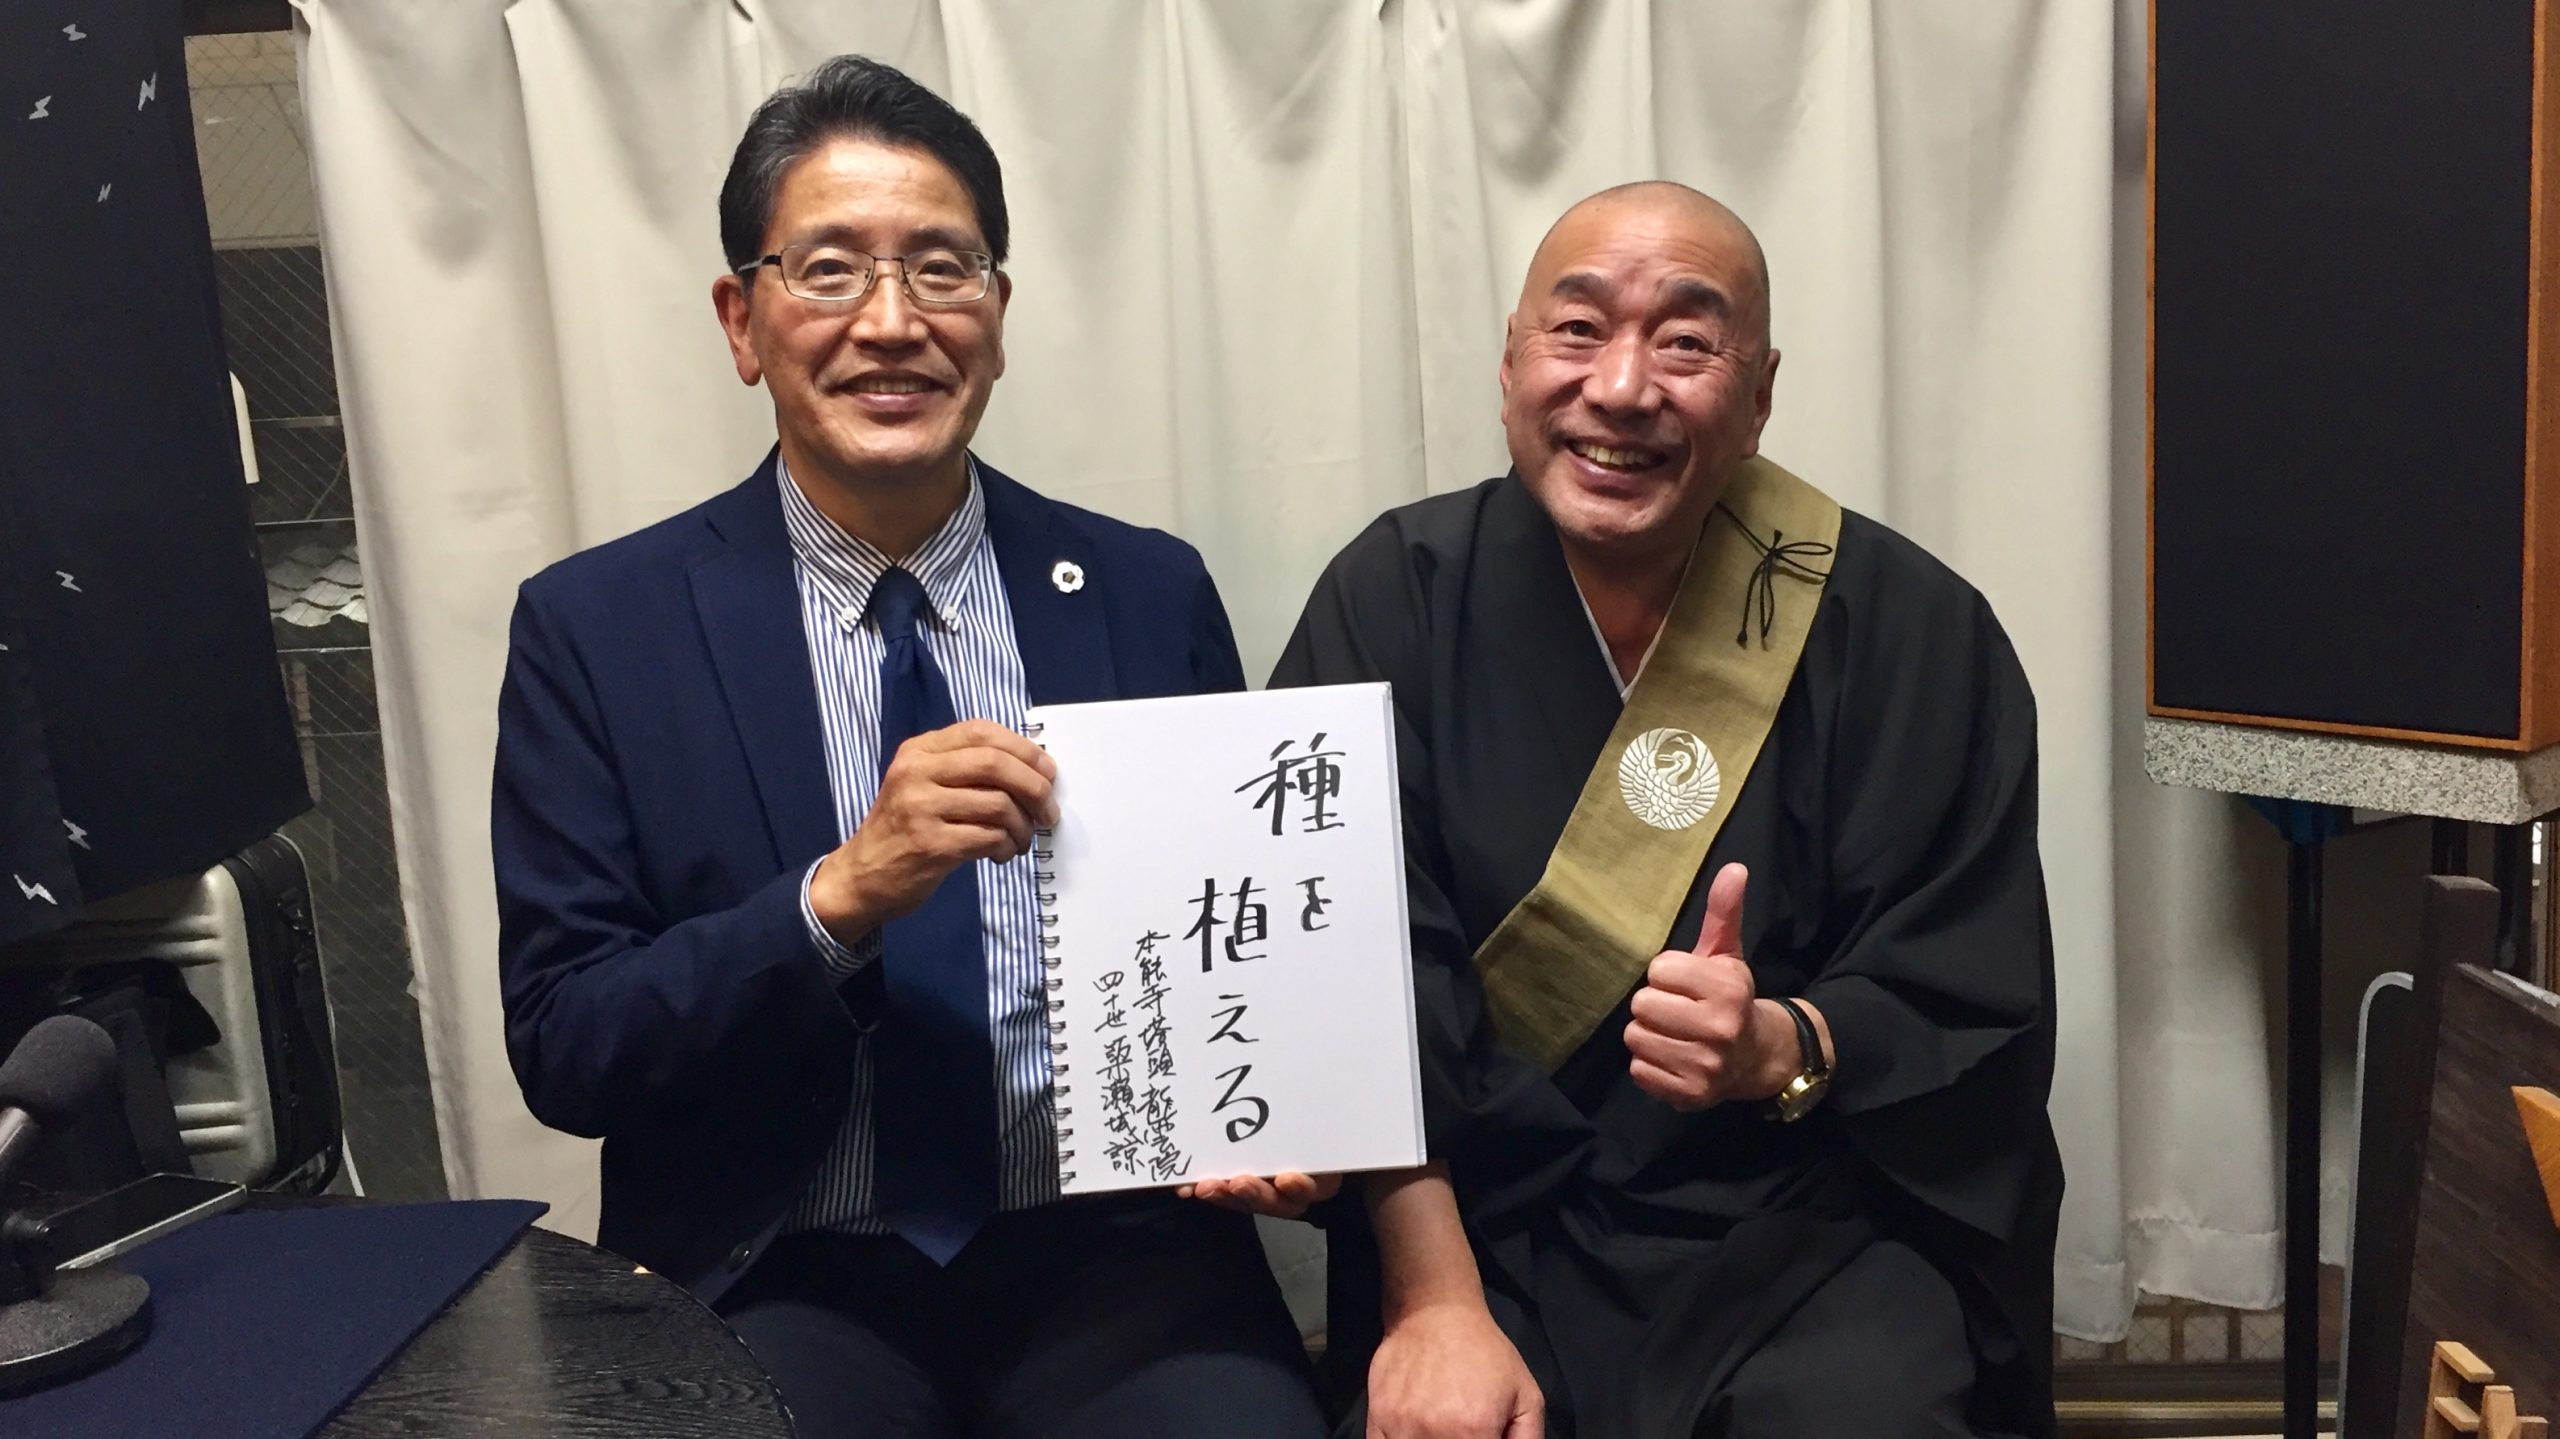 種を
植える
本能寺塔頭龍雲院
四十世 簗瀬城諒